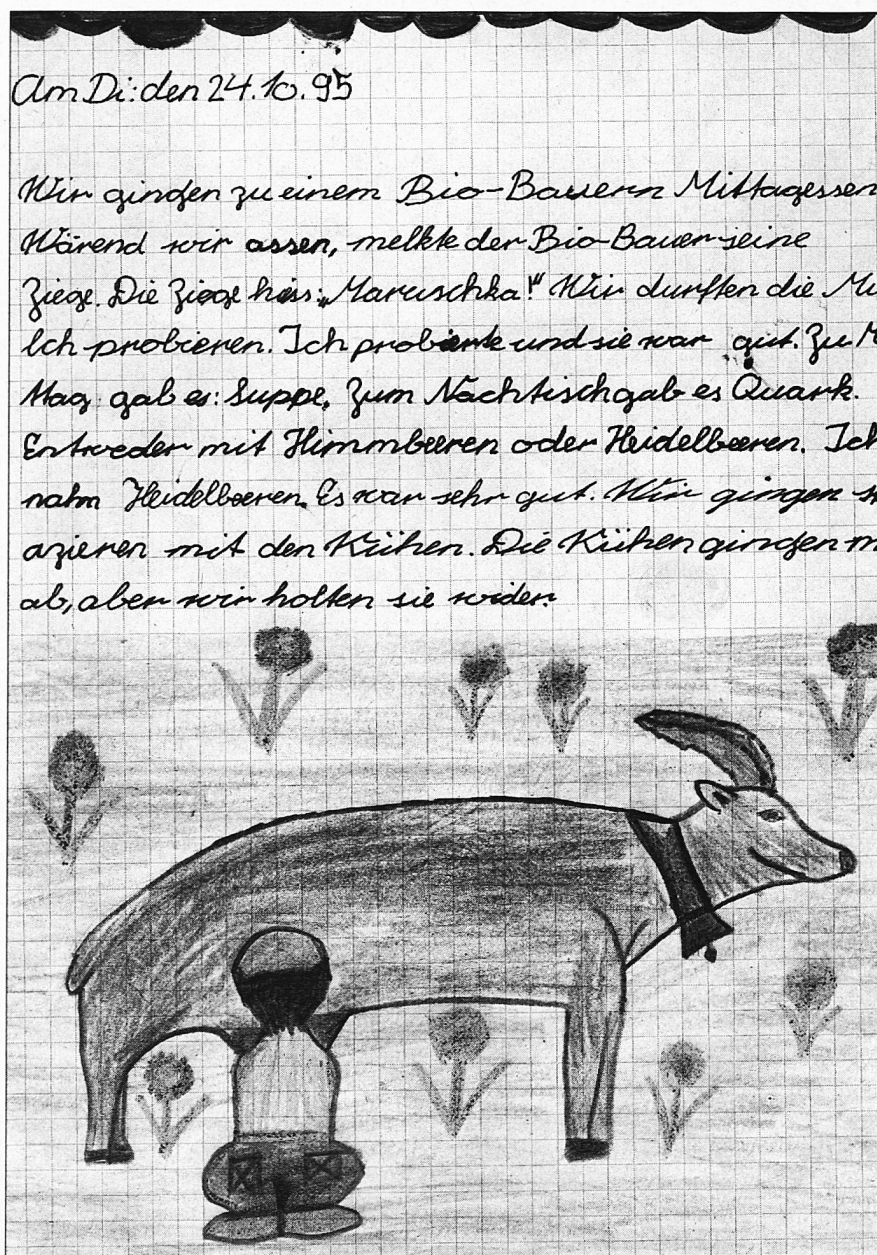 Am Di: den 24.10.95
Wir gingen zu einem Bio-Bauern Mittagessen
Wärend wir assen, melkte der Bio-Bauer seine
Ziege. Die Ziege hiss: „Maruschka!" Wir durften die Mi
lch probieren. Ich probierte und sie war gut. Zu M
ttag gab es: Suppe, Zum Nachtisch gab es Quark.
Entweder mit Himmbeeren oder Heidelbeeren. Ich
nahm Heidelbeeren. Es war sehr gut. Wir gingen sp
azieren mit den Kühen. Die Kühen gingen m
ab, aber wir holten sie wider.